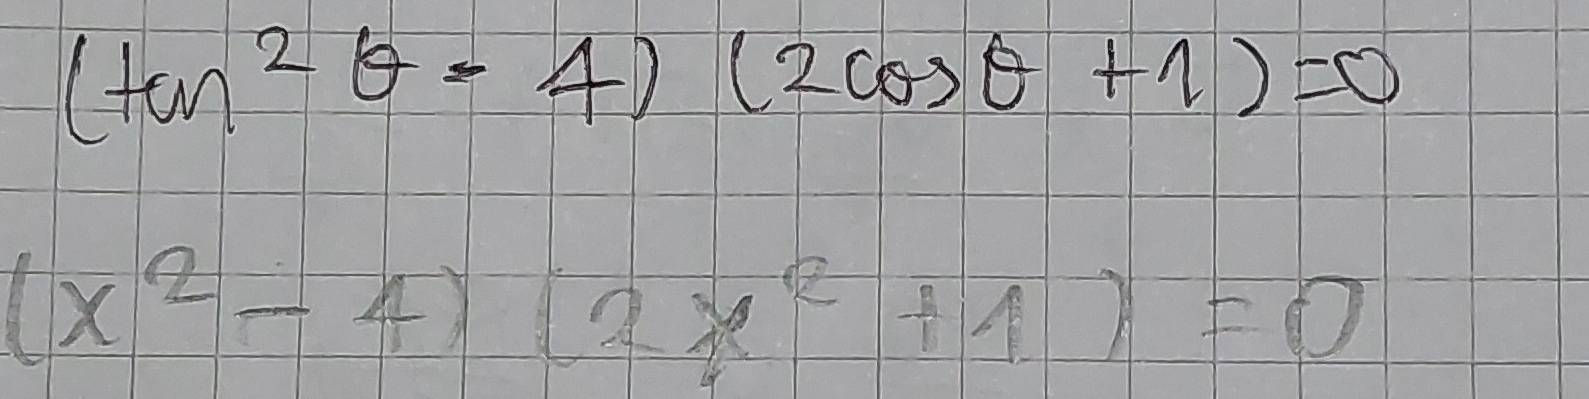 (tan² θ - 4) (2cos θ + 1) = 0
(x² - 4) (2x² + 1) = 0